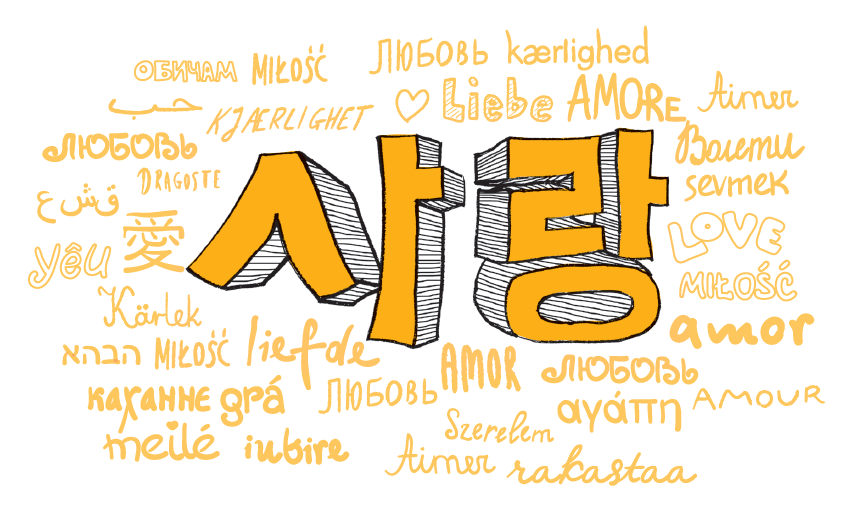 ОБИЧАМ MIŁOŚĆ ЛЮБОВЬ kærlighed
حب KJÆRLIGHET Liebe AMORE Aimer
ЛЮБОВЬ DRAGOSTE Волети
قشع sevmek
사랑
yêu 愛 LOVE
MIŁOŚĆ
Kärlek amor
הבהא MIŁOŚĆ liefde AMOR ЛЮБОВЬ
каханне grá ЛЮБОВЬ αγάπη AMOUR
meilé iubire Szerelem
Aimer rakastaa